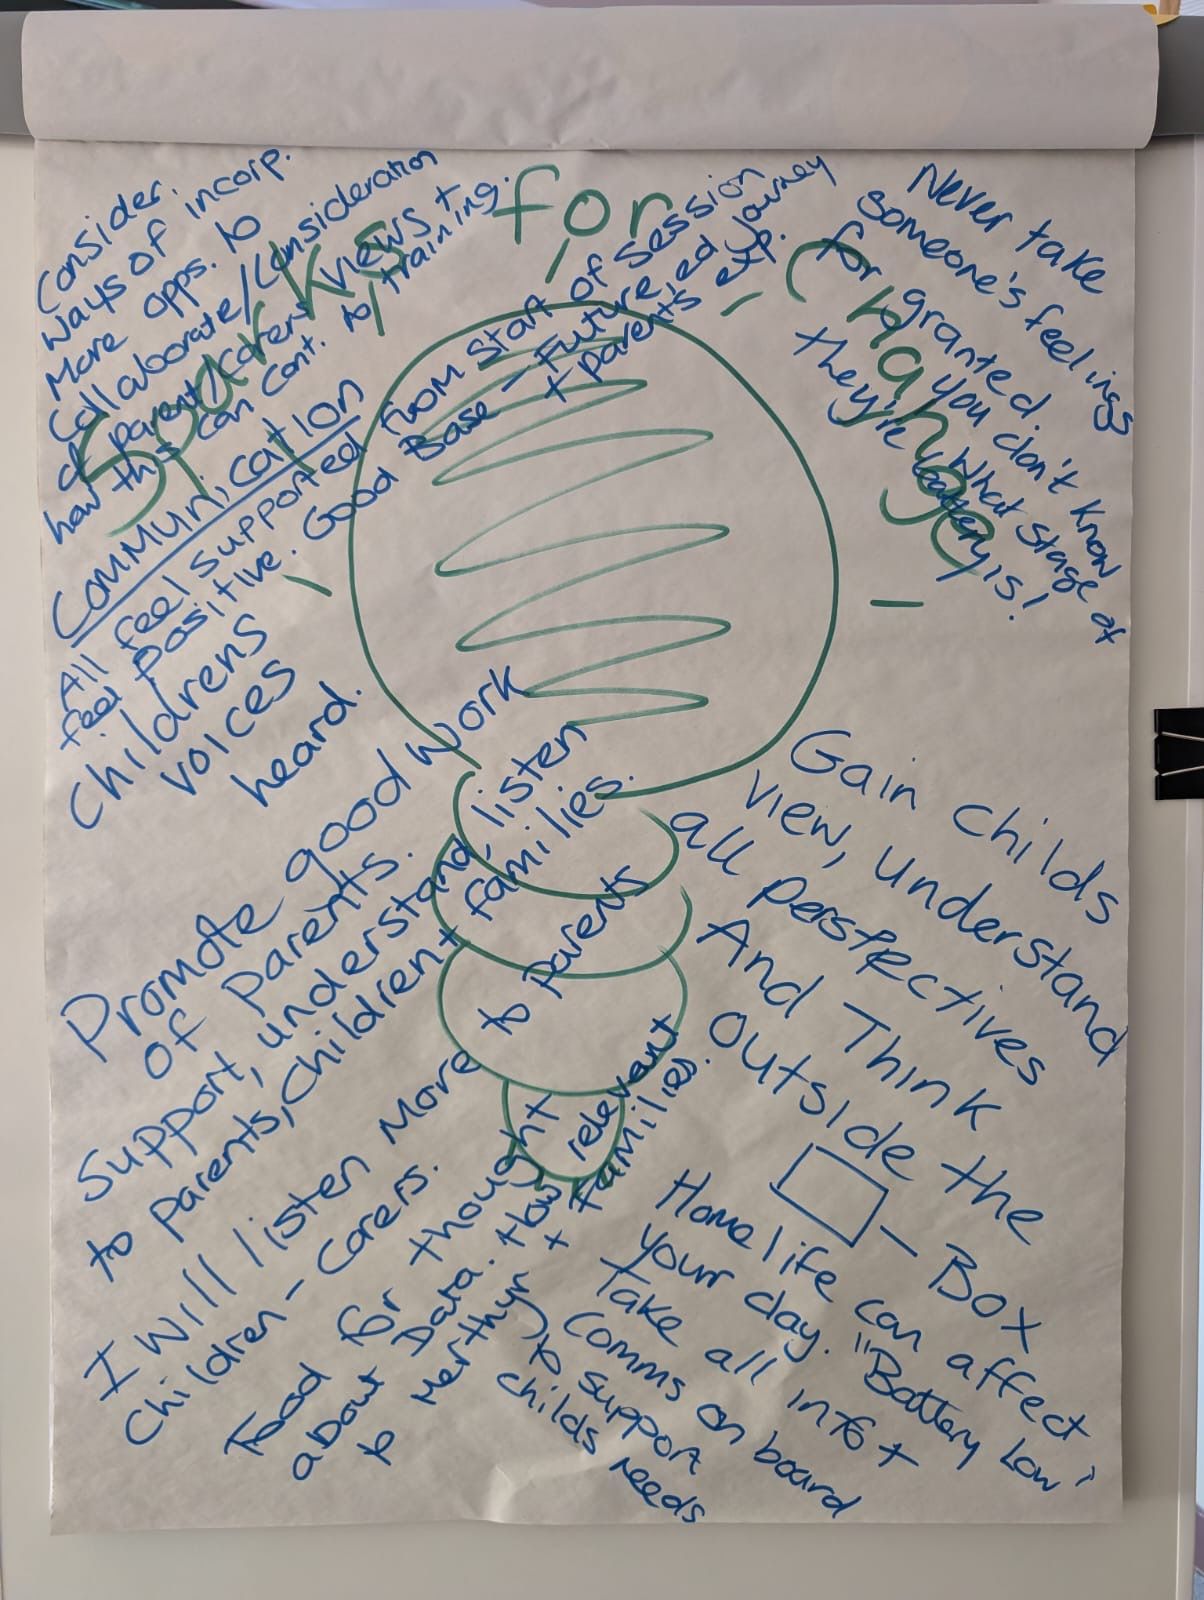 Sparks for Change
Consider.
Ways of incorp.
More opps. to
Collaborate/Consideration
of parent/carers views +
how this can cont. to training.
Communication
All feel supported from Start of Session
feel positive. Good Base - Future ed journey
+ parents exp.
Childrens
voices
heard.
Never take
someone's feelings
for granted.
You don't know
What stage of
they're battery is!
Promote good work
of parents.
Support, understand, listen
to parents, children + families.
I will listen More to Parents
Children - Carers.
Food for thought
about Data. How relevant
to Merthyr + Families.
Gain childs
view, understand
all perspectives
And Think
Outside the
Box
Home life can affect
your day. "Battery Low"
Take all info +
Comms on board
to support
childs needs